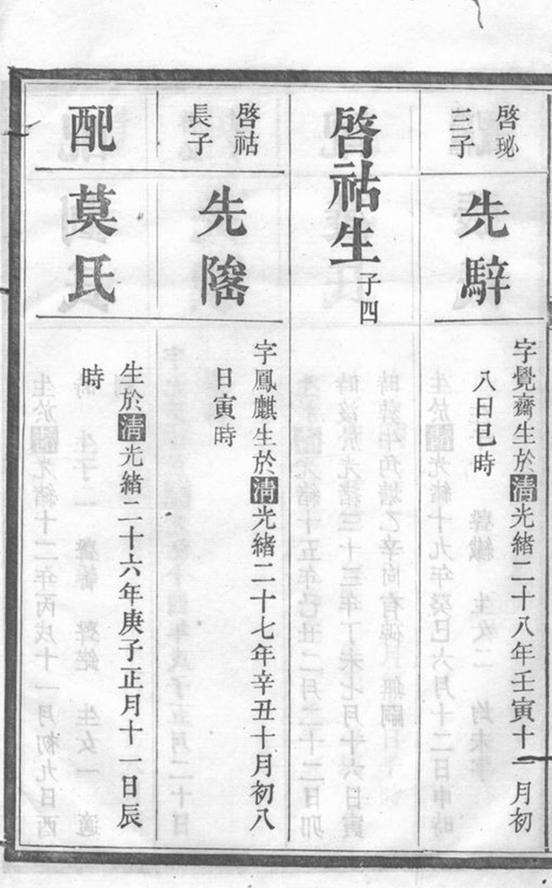 啓珌
三子
先騂
字覺齋生於清光緒二十八年壬寅十一月初
八日巳時
啓祜生
子四
啓祜
長子
先
字鳳麒生於清光緒二十七年辛丑十月初八
日寅時
配
莫氏
生於清光緒二十六年庚子正月十一日辰
時